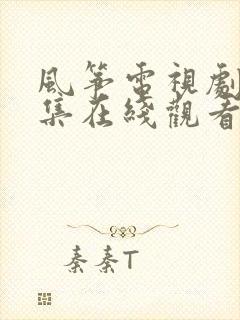 風箏電視劇
集在綫觀看
秦秦T